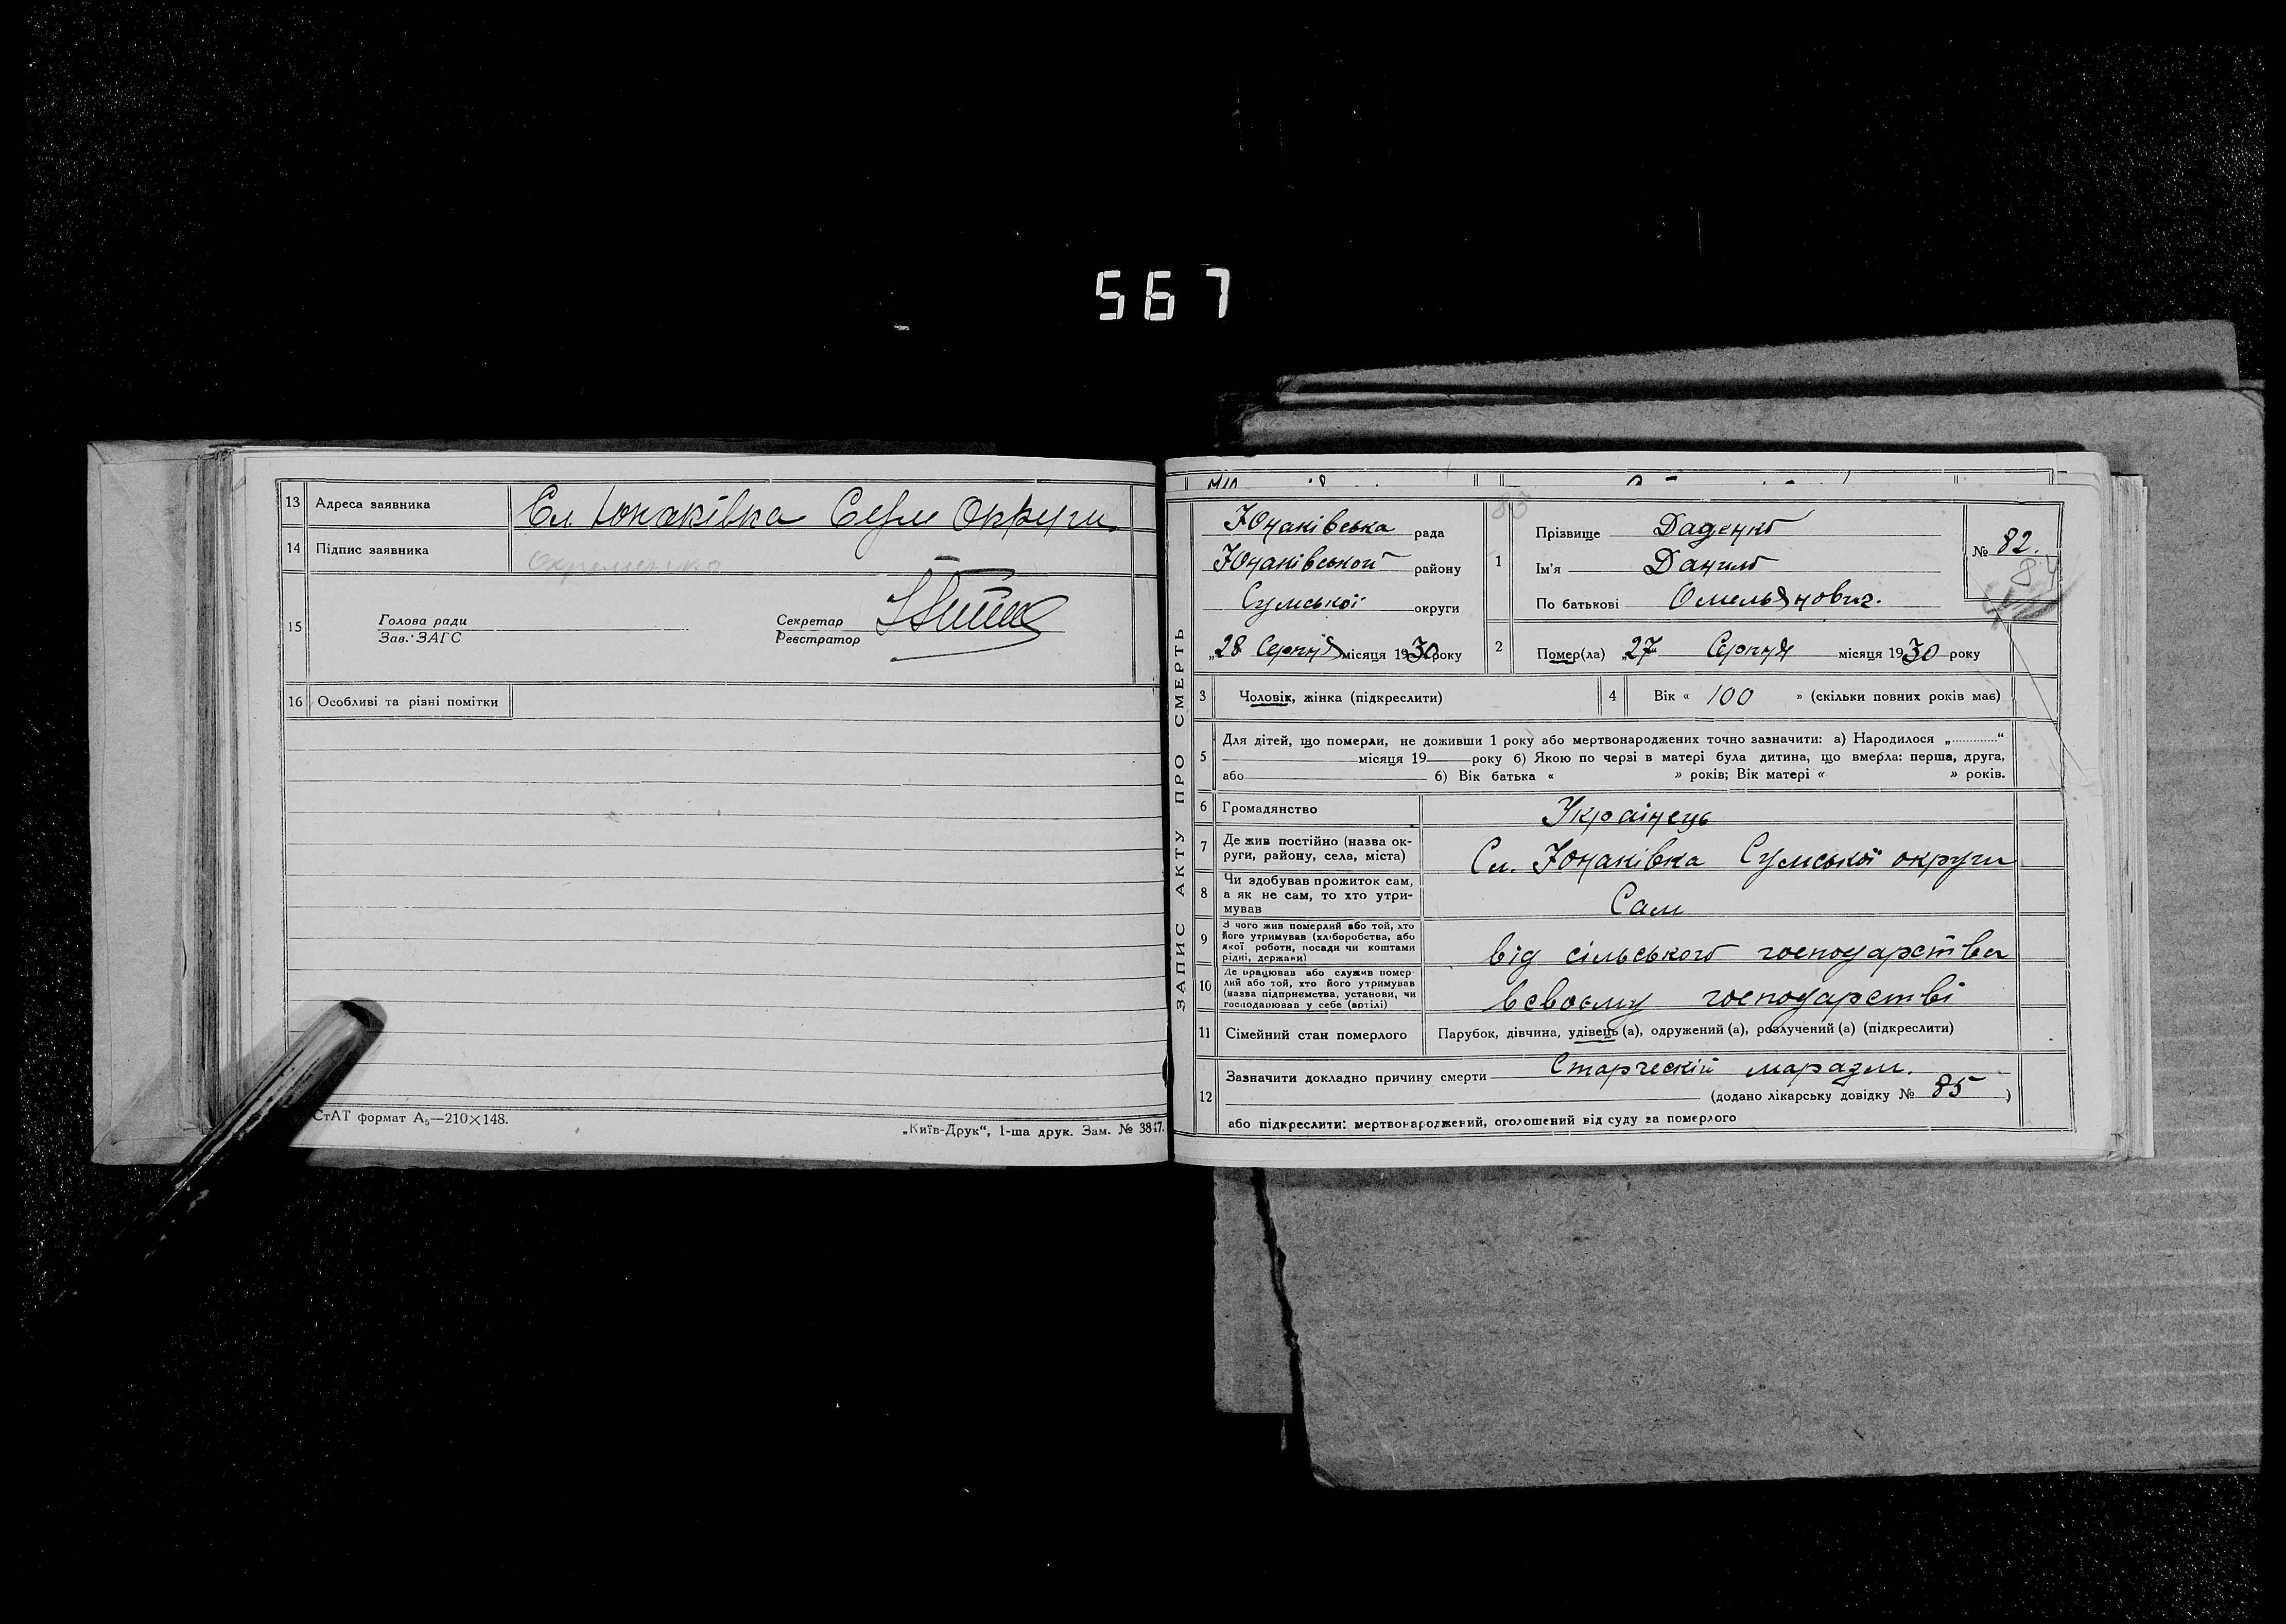 567
13 Адреса заявника Сл. Юнаківка Сум Округи
14 Підпис заявника Охременко
15 Голова ради
Зав. ЗАГС
Секретар
Реєстратор
16 Особливі та різні помітки
СтАТ формат А5—210×148.
„Київ-Друк“, 1-ша друк. Зам. № 3847.
ЗАПИС АКТУ ПРО СМЕРТЬ
83
Юнаківська рада
Юнаківської району
Сумської округи
„28 Серпня місяця 1930 року
1 Прізвище Даденко
Ім'я Данило
По батькові Омельянович.
№ 82.
84
2 Помер(ла) „27 Серпня місяця 1930 року
3 Чоловік, жінка (підкреслити)
4 Вік « 100 » (скільки повних років має)
5 Для дітей, що померли, не доживши 1 року або мертвонароджених точно зазначити: а) Народилося „............“
місяця 19 року б) Якою по черзі в матері була дитина, що вмерла: перша, друга,
або 6) Вік батька « » років; Вік матері « » років.
6 Громадянство Українець
7 Де жив постійно (назва ок-
руги, району, села, міста) Сл. Юнаківка Сумської округи
8 Чи здобував прожиток сам,
а як не сам, то хто утри-
мував Сам
9 З чого жив померлий або той, хто
його утримував (хліборобства, або
якої роботи, посади чи коштами
рідні, держави) від сільського господарства
10 Де працював або служив помер
лий або той, хто його утримував
(назва підприємства, установи, чи
господарював у себе (артілі) всвоєму господарстві
11 Сімейний стан померлого Парубок, дівчина, удівець (а), одружений (а), розлучений (а) (підкреслити)
12 Зазначити докладно причину смерти Старческій маразм.
(додано лікарську довідку № 85 )
або підкреслити: мертвонароджений, оголошений від суду за померлого